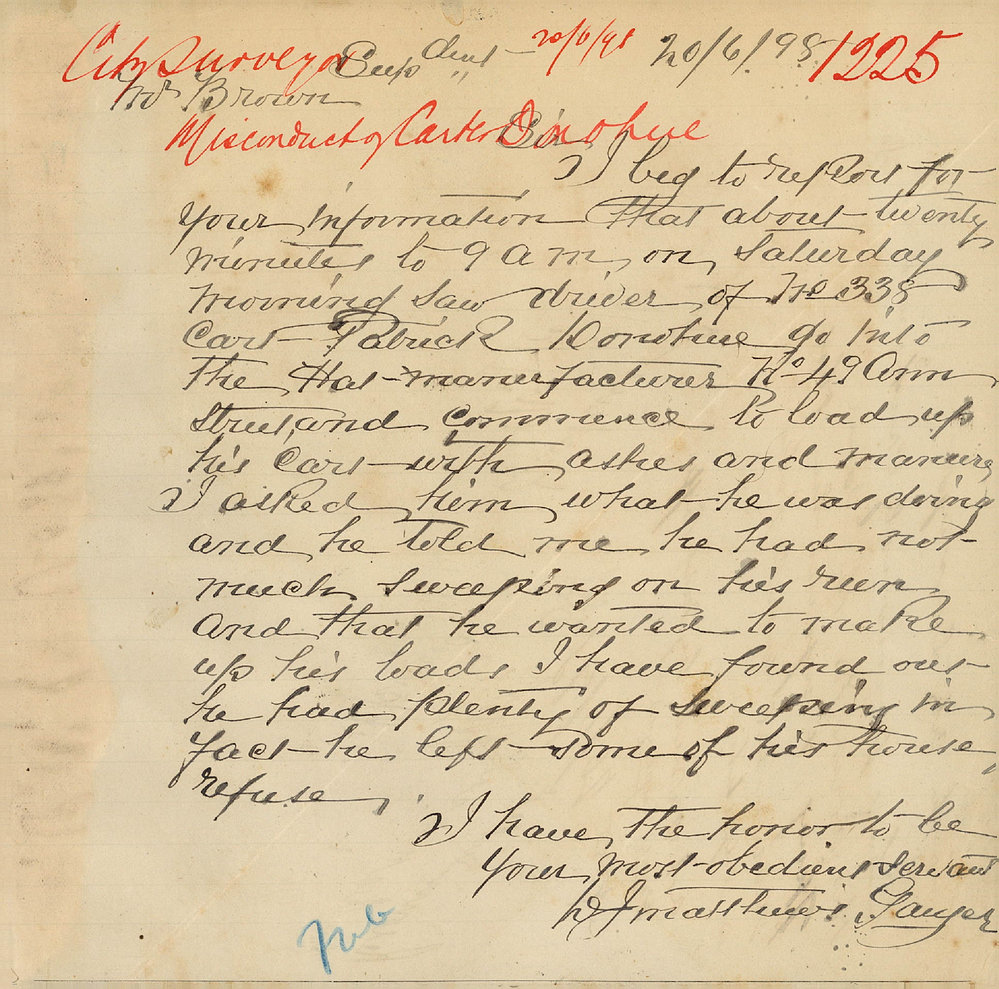 City Surveyor 20/6/98 20/6/98 1225
Mr Brown
Misconduct of Carter Donohue
Sir
I beg to report for
your information that about twenty
minutes to 9 a m on Saturday
morning saw driver of No 338
Cart Patrick Donohue go into
the Hat manufacturer No 49 Ann
Street and commence to load up
his Cart with ashes and manure
I asked him what he was doing
and he told me he had not
much Sweeping on his run
and that he wanted to make
up his loads I have found out
he had plenty of sweeping in
fact he left some of his house
refuse.
I have the honor to be
Your most obedient servant
D J Matthews Ganger